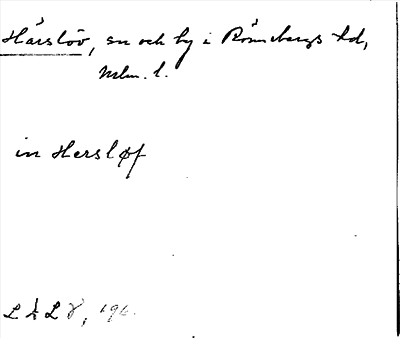 Härslöv, sn och by i Rönnebergs hd,
Mlm. l.
in Hersløf